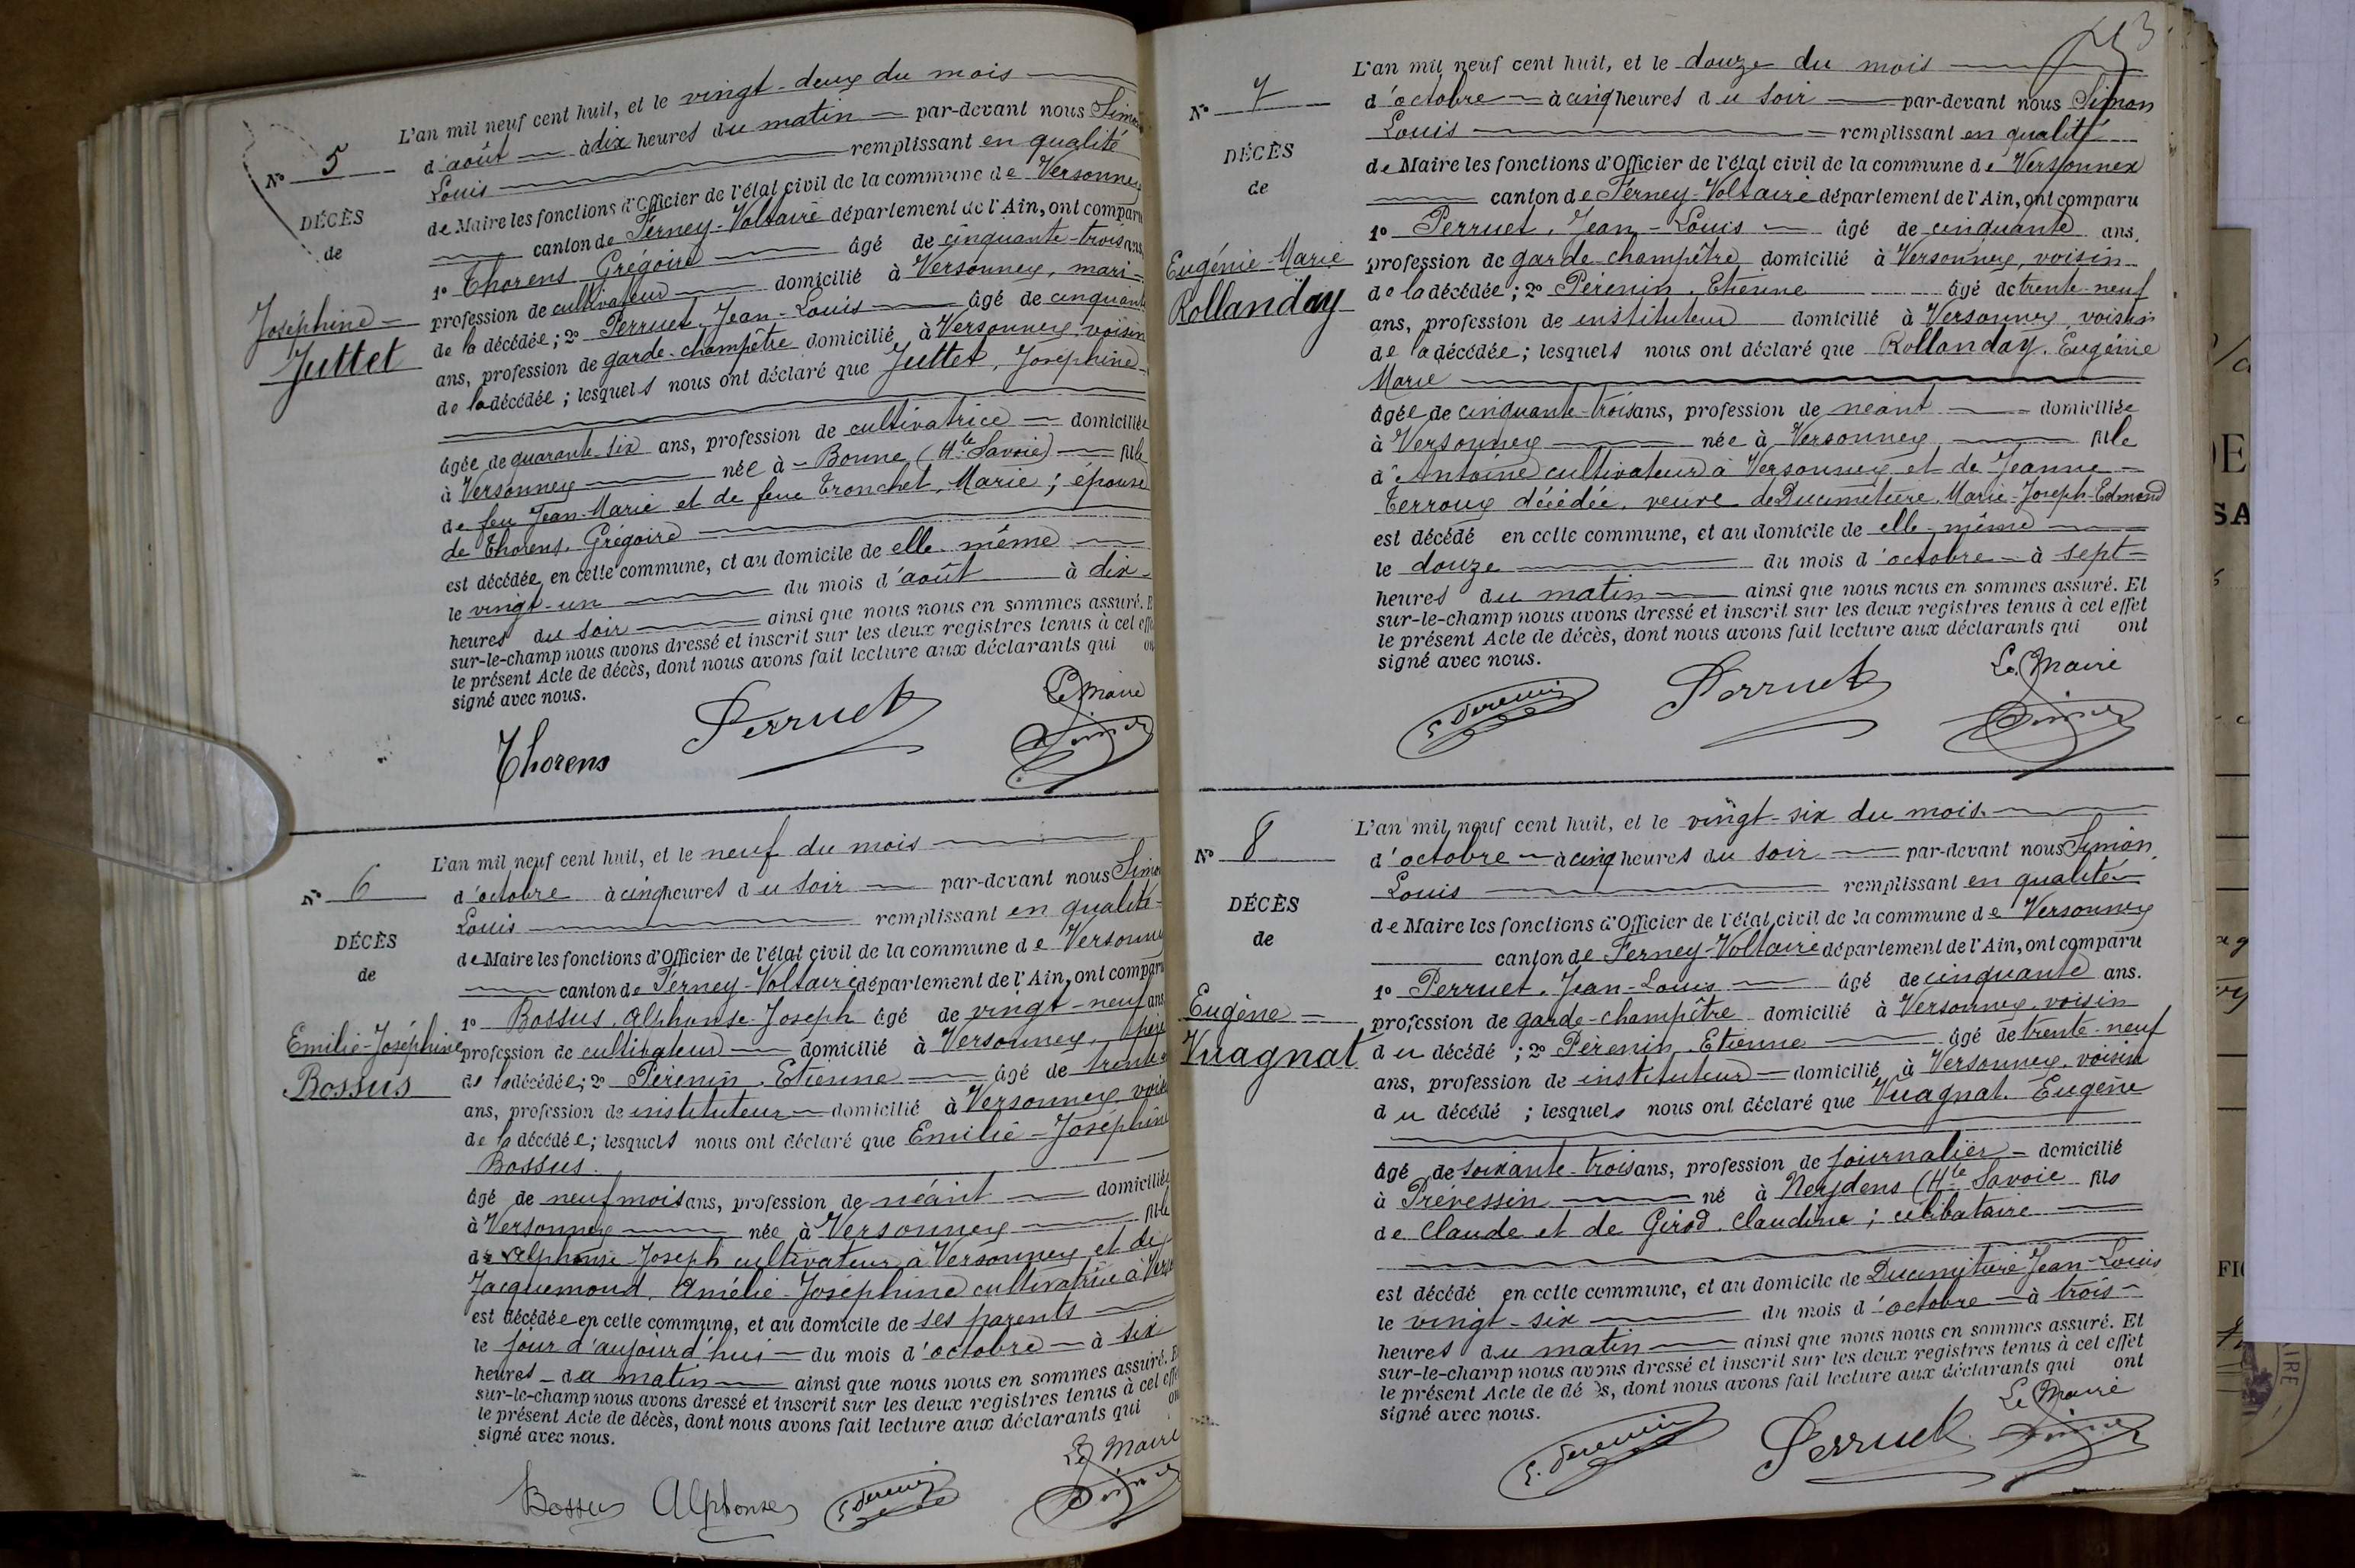 L'an mil neuf cent huit, et le vingt-deux du mois
N° 5
d'août à dix heures du matin par-devant nous Simon
Louis remplissant en qualité
DÉCÈS
de
de Maire les fonctions d'Officier de l'état civil de la commune de Versonnex
canton de Ferney-Voltaire département de l'Ain, ont comparu
1° Thorens Grégoire âgé de cinquante-trois ans,
Joséphine
Juttet
profession de cultivateur domicilié à Versonnex, mari
de la décédée ; 2° Perruet Jean-Louis âgé de cinquante
ans, profession de garde-champêtre domicilié à Versonnex voisin
de la décédée ; lesquels nous ont déclaré que Juttet, Joséphine
âgée de quarante-six ans, profession de cultivatrice domiciliée
à Versonnex née à Bonne (Hte Savoie) fille
de feu Jean-Marie et de feue Tronchet, Marie ; épouse
de Thorens, Grégoire
est décédée en cette commune, et au domicile de elle-même
le vingt-un du mois d'août à dix
heures du soir ainsi que nous nous en sommes assuré. E
sur-le-champ nous avons dressé et inscrit sur les deux registres tenus à cet effe
le présent Acte de décès, dont nous avons fait lecture aux déclarants qui on
signé avec nous.
Le Maire
Thorens Perruet Simon
L'an mil neuf cent huit, et le neuf du mois
N° 6
d'octobre à cinq heures du soir par-devant nous Simon
Louis remplissant en qualité
DÉCÈS
de
de Maire les fonctions d'Officier de l'état civil de la commune de Versonne
canton de Ferney-Voltaire département de l'Ain, ont comparu
1° Bossus, Alphonse-Joseph âgé de vingt-neuf ans
Emilie-Joséphine
Bossus
profession de cultivateur domicilié à Versonnex, père
de la décédée ; 2° Pérenin, Etienne âgé de trente
ans, profession de instituteur domicilié à Versonnex, voisi
de la décédée ; lesquels nous ont déclaré que Emilie-Joséphine
Bossus.
âgé de neuf mois ans, profession de néant domiciliée
à Versonnex née à Versonnex fille
de Alphonse-Joseph cultivateur à Versonnex et de
Jacquemond, Amélie-Joséphine cultivatrice à Vers
est décédée en cette commune, et au domicile de ses parents
le jour d'aujourd'hui du mois d'octobre à six
heures du matin ainsi que nous nous en sommes assuré. E
sur-le-champ nous avons dressé et inscrit sur les deux registres tenus à cet effe
le présent Acte de décès, dont nous avons fait lecture aux déclarants qui on
signé avec nous.
Le Maire
Bossus Alphonse E. Perenin Simon
L'an mil neuf cent huit, et le douze du mois
N° 7
d'octobre à cinq heures du soir par-devant nous Simon
Louis remplissant en qualité
DÉCÈS
de
de Maire les fonctions d'Officier de l'état civil de la commune de Versonnex
canton de Ferney-Voltaire département de l'Ain, ont comparu
1° Perruet, Jean-Louis âgé de cinquante ans,
Eugénie-Marie
Rollanday
profession de garde-champêtre domicilié à Versonnex, voisin
de la décédée ; 2° Pérenin, Etienne âgé de trente-neuf
ans, profession de instituteur domicilié à Versonnex voisin
de la décédée ; lesquels nous ont déclaré que Rollanday, Eugénie
Marie
âgée de cinquante-trois ans, profession de néant domiciliée
à Versonnex née à Versonnex fille
d'Antoine cultivateur à Versonnex et de Jeanne
Terroux décédée, veuve de Ducimetière, Marie-Joseph-Edmond
est décédé en cette commune, et au domicile de elle-même
le douze du mois d'octobre à sept
heures du matin ainsi que nous nous en sommes assuré. Et
sur-le-champ nous avons dressé et inscrit sur les deux registres tenus à cet effet
le présent Acte de décès, dont nous avons fait lecture aux déclarants qui ont
signé avec nous.
Le Maire
E. Perenin Perruet Simon
L'an mil neuf cent huit, et le vingt-six du mois
N° 8
d'octobre à cinq heures du soir par-devant nous Simon
Louis remplissant en qualité
DÉCÈS
de
de Maire les fonctions d'Officier de l'état civil de la commune de Versonnex
canton de Ferney-Voltaire département de l'Ain, ont comparu
1° Perruet, Jean-Louis âgé de cinquante ans.
Eugène
Vuagnat
profession de garde-champêtre domicilié à Versonnex, voisin
du décédé ; 2° Pérenin, Etienne âgé de trente-neuf
ans, profession de instituteur domicilié à Versonnex, voisin
du décédé ; lesquels nous ont déclaré que Vuagnat, Eugène
âgé de soixante-trois ans, profession de journalier domicilié
à Prévessin né à Neydens (Hte Savoie fils
de Claude et de Girod, Claudine ; célibataire
est décédé en cette commune, et au domicile de Ducimetière Jean-Louis
le vingt-six du mois d'octobre à trois
heures du matin ainsi que nous nous en sommes assuré. Et
sur-le-champ nous avons dressé et inscrit sur les deux registres tenus à cet effet
le présent Acte de dé s, dont nous avons fait lecture aux déclarants qui ont
signé avec nous.
Le Maire
E. Perenin Perruet Simon